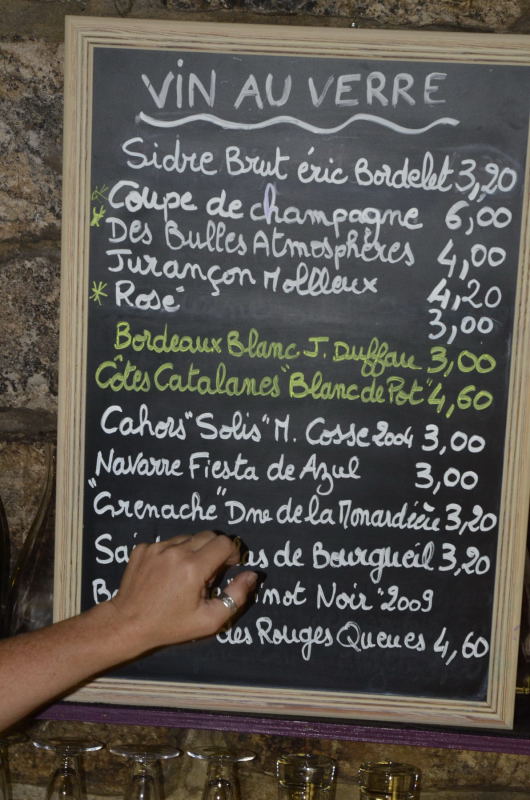 VIN AU VERRE
Sidre Brut éric Bordelet 3,20
* Coupe de champagne 6,00
* Des Bulles Atmosphères 4,00
Jurançon Mollleux 4,20
* Rosé 3,00
Bordeaux Blanc J. Duffau 3,00
Côtes Catalanes "Blanc de Pot" 4,60
Cahors "Solis" M. Cosse 2004 3,00
Navarre Fiesta de Azul 3,00
"Grenache" Dne de la Monardière 3,20
de Bourgueil 3,20
Noir "2009
des Rouges Queues 4,60